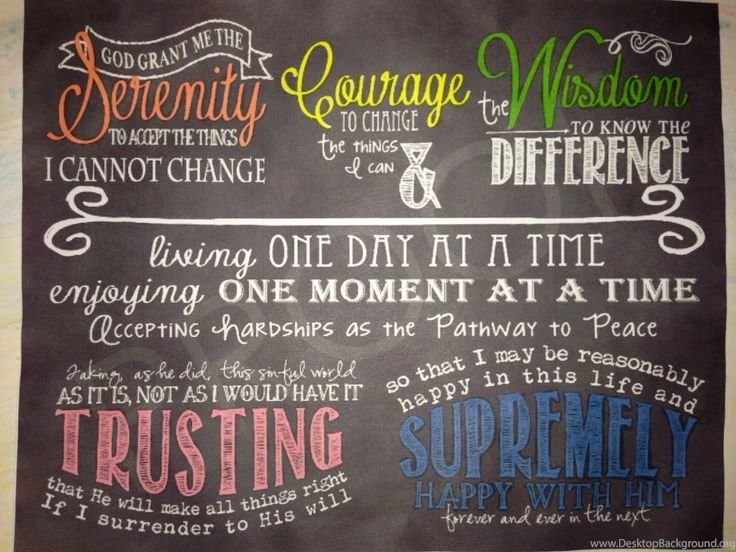 GOD GRANT ME THE
Serenity
TO ACCEPT THE THINGS
I CANNOT CHANGE
Courage
TO CHANGE
the things
I can
&
the Wisdom
TO KNOW THE
DIFFERENCE
living ONE DAY AT A TIME
enjoying ONE MOMENT AT A TIME
Accepting hardships as the Pathway to Peace
Taking, as he did, this sinful world
AS IT IS, NOT AS I WOULD HAVE IT
TRUSTING
that He will make all things right
If I surrender to His will
so that I may be reasonably
happy in this life and
SUPREMELY
HAPPY WITH HIM
forever and ever in the next
www.DesktopBackground.org